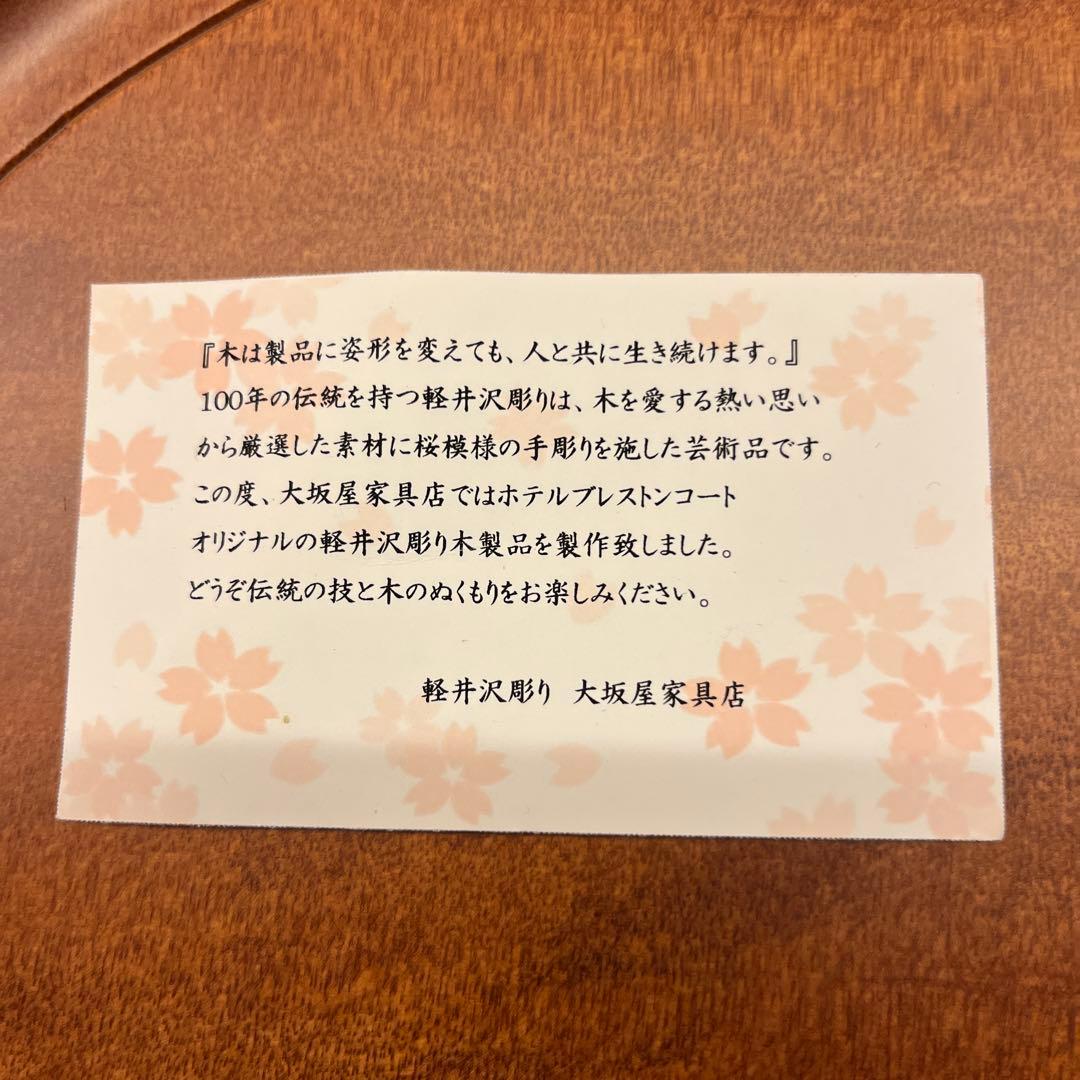 『木は製品に姿形を変えても、人と共に生き続けます。』
100年の伝統を持つ軽井沢彫りは、木を愛する熱い思い
から厳選した素材に桜模様の手彫りを施した芸術品です。
この度、大坂屋家具店ではホテルブレストンコート
オリジナルの軽井沢彫り木製品を製作致しました。
どうぞ伝統の技と木のぬくもりをお楽しみください。
軽井沢彫り 大坂屋家具店